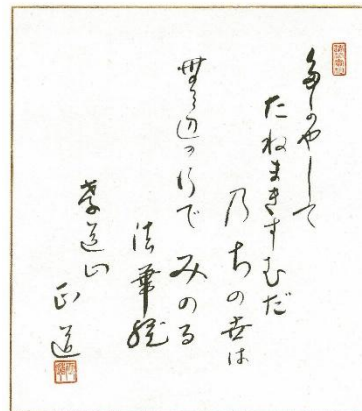 多かやして
たねまきすむだ
乃ちの世は
無辺の行でみのる
法華経
孝道山
正道